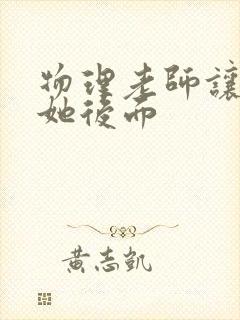 物理老師讓
她後面
黃志凱